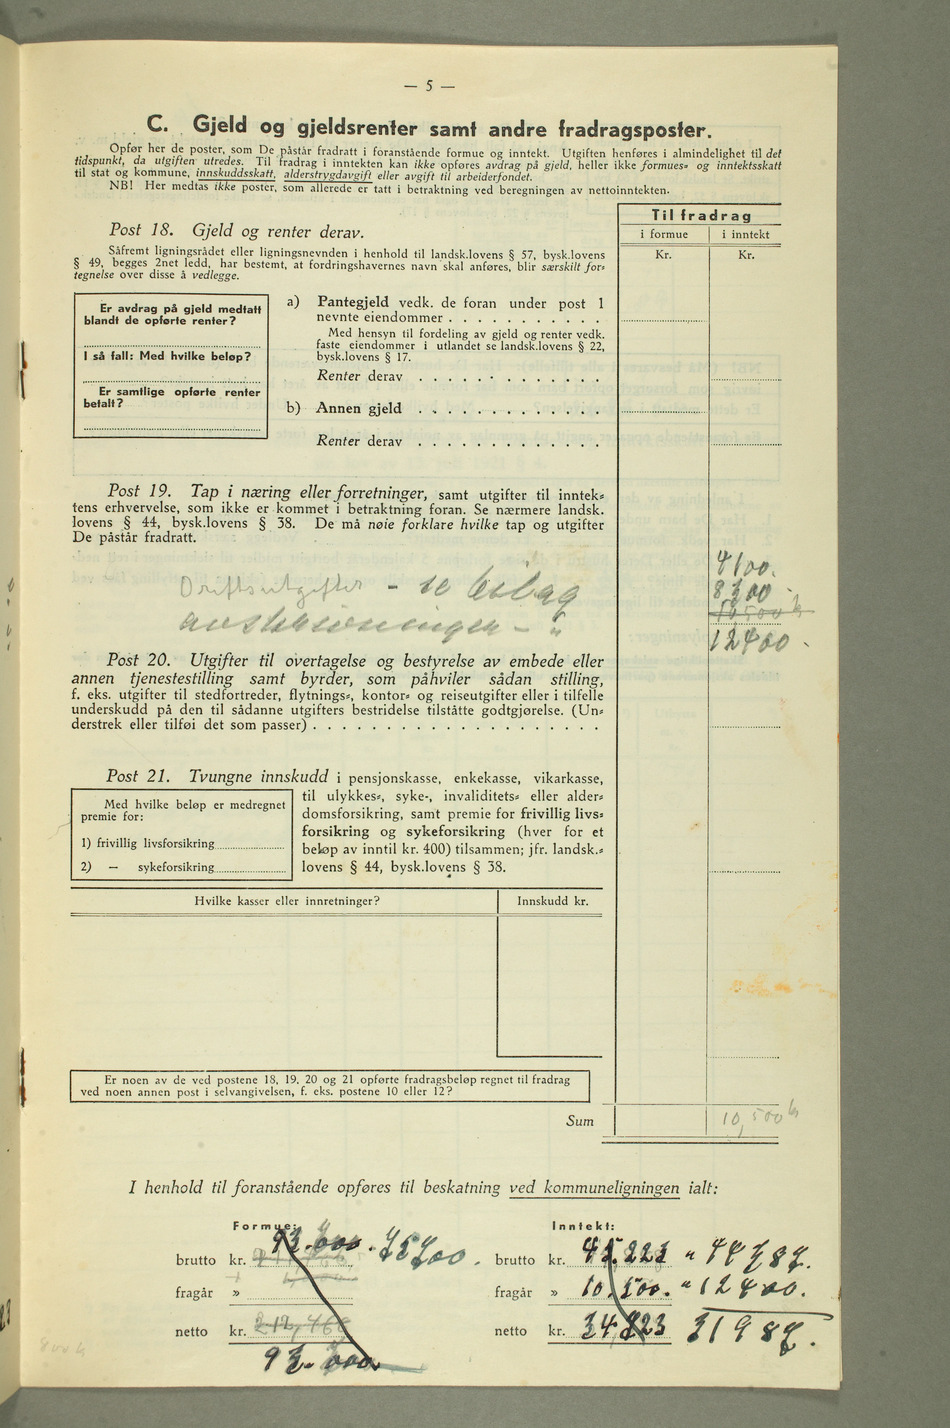 — 5 —
C. Gjeld og gjeldsrenter samt andre fradragsposter.
Opfør her de poster, som De påstår fradratt i foranstående formue og inntekt. Utgiften henføres i almindelighet til det
tidspunkt, da utgiften utredes. Til fradrag i inntekten kan ikke opføres avdrag på gjeld, heller ikke formues- og inntektsskatt
til stat og kommune, innskuddsskatt, alderstrygdavgift eller avgift til arbeiderfondet.
NB! Her medtas ikke poster, som allerede er tatt i betraktning ved beregningen av nettoinntekten.
Til fradrag
i formue
i inntekt
Kr.
Kr.
Post 18. Gjeld og renter derav.
Såfremt ligningsrådet eller ligningsnevnden i henhold til landsk.lovens § 57, bysk.lovens
§ 49, begges 2net ledd, har bestemt, at fordringshavernes navn skal anføres, blir særskilt for=
tegnelse over disse å vedlegge.
Er avdrag på gjeld medtatt
blandt de opførte renter?
I så fall: Med hvilke beløp?
Er samtlige opførte renter
betalt?
a) Pantegjeld vedk. de foran under post 1
nevnte eiendommer . . . . . . . . . . .
Med hensyn til fordeling av gjeld og renter vedk.
faste eiendommer i utlandet se landsk.lovens § 22,
bysk.lovens § 17.
Renter derav . . . . . . . . . . . . .
b) Annen gjeld . . . . . . . . . . . . .
Renter derav . . . . . . . . . . . . .
Post 19. Tap i næring eller forretninger, samt utgifter til inntek=
tens erhvervelse, som ikke er kommet i betraktning foran. Se nærmere landsk.
lovens § 44, bysk.lovens § 38. De må nøie forklare hvilke tap og utgifter
De påstår fradratt.
4100.
Driftsutgifter - se bilag
8300 -
10500 k
avskrivningen - "
12400 -
Post 20. Utgifter til overtagelse og bestyrelse av embede eller
annen tjenestestilling samt byrder, som påhviler sådan stilling,
f. eks. utgifter til stedfortreder, flytnings=, kontor= og reiseutgifter eller i tilfelle
underskudd på den til sådanne utgifters bestridelse tilståtte godtgjørelse. (Un=
derstrek eller tilføi det som passer) . . . . . . . . . . . . . . . . . . .
Post 21. Tvungne innskudd i pensjonskasse, enkekasse, vikarkasse,
til ulykkes=, syke-, invaliditets= eller alder=
domsforsikring, samt premie for frivillig livs=
forsikring og sykeforsikring (hver for et
beløp av inntil kr. 400) tilsammen; jfr. landsk.=
lovens § 44, bysk.lovens § 38.
Med hvilke beløp er medregnet
premie for:
1) frivillig livsforsikring
2) — sykeforsikring
Hvilke kasser eller innretninger?
Innskudd kr.
Er noen av de ved postene 18, 19, 20 og 21 opførte fradragsbeløp regnet til fradrag
ved noen annen post i selvangivelsen, f. eks. postene 10 eller 12?
Sum
10,500 k
I henhold til foranstående opføres til beskatning ved kommuneligningen ialt:
Formue:
Inntekt:
brutto kr.
brutto kr.
fragår »
fragår » 10.500. " 12400.
netto kr.
netto kr.